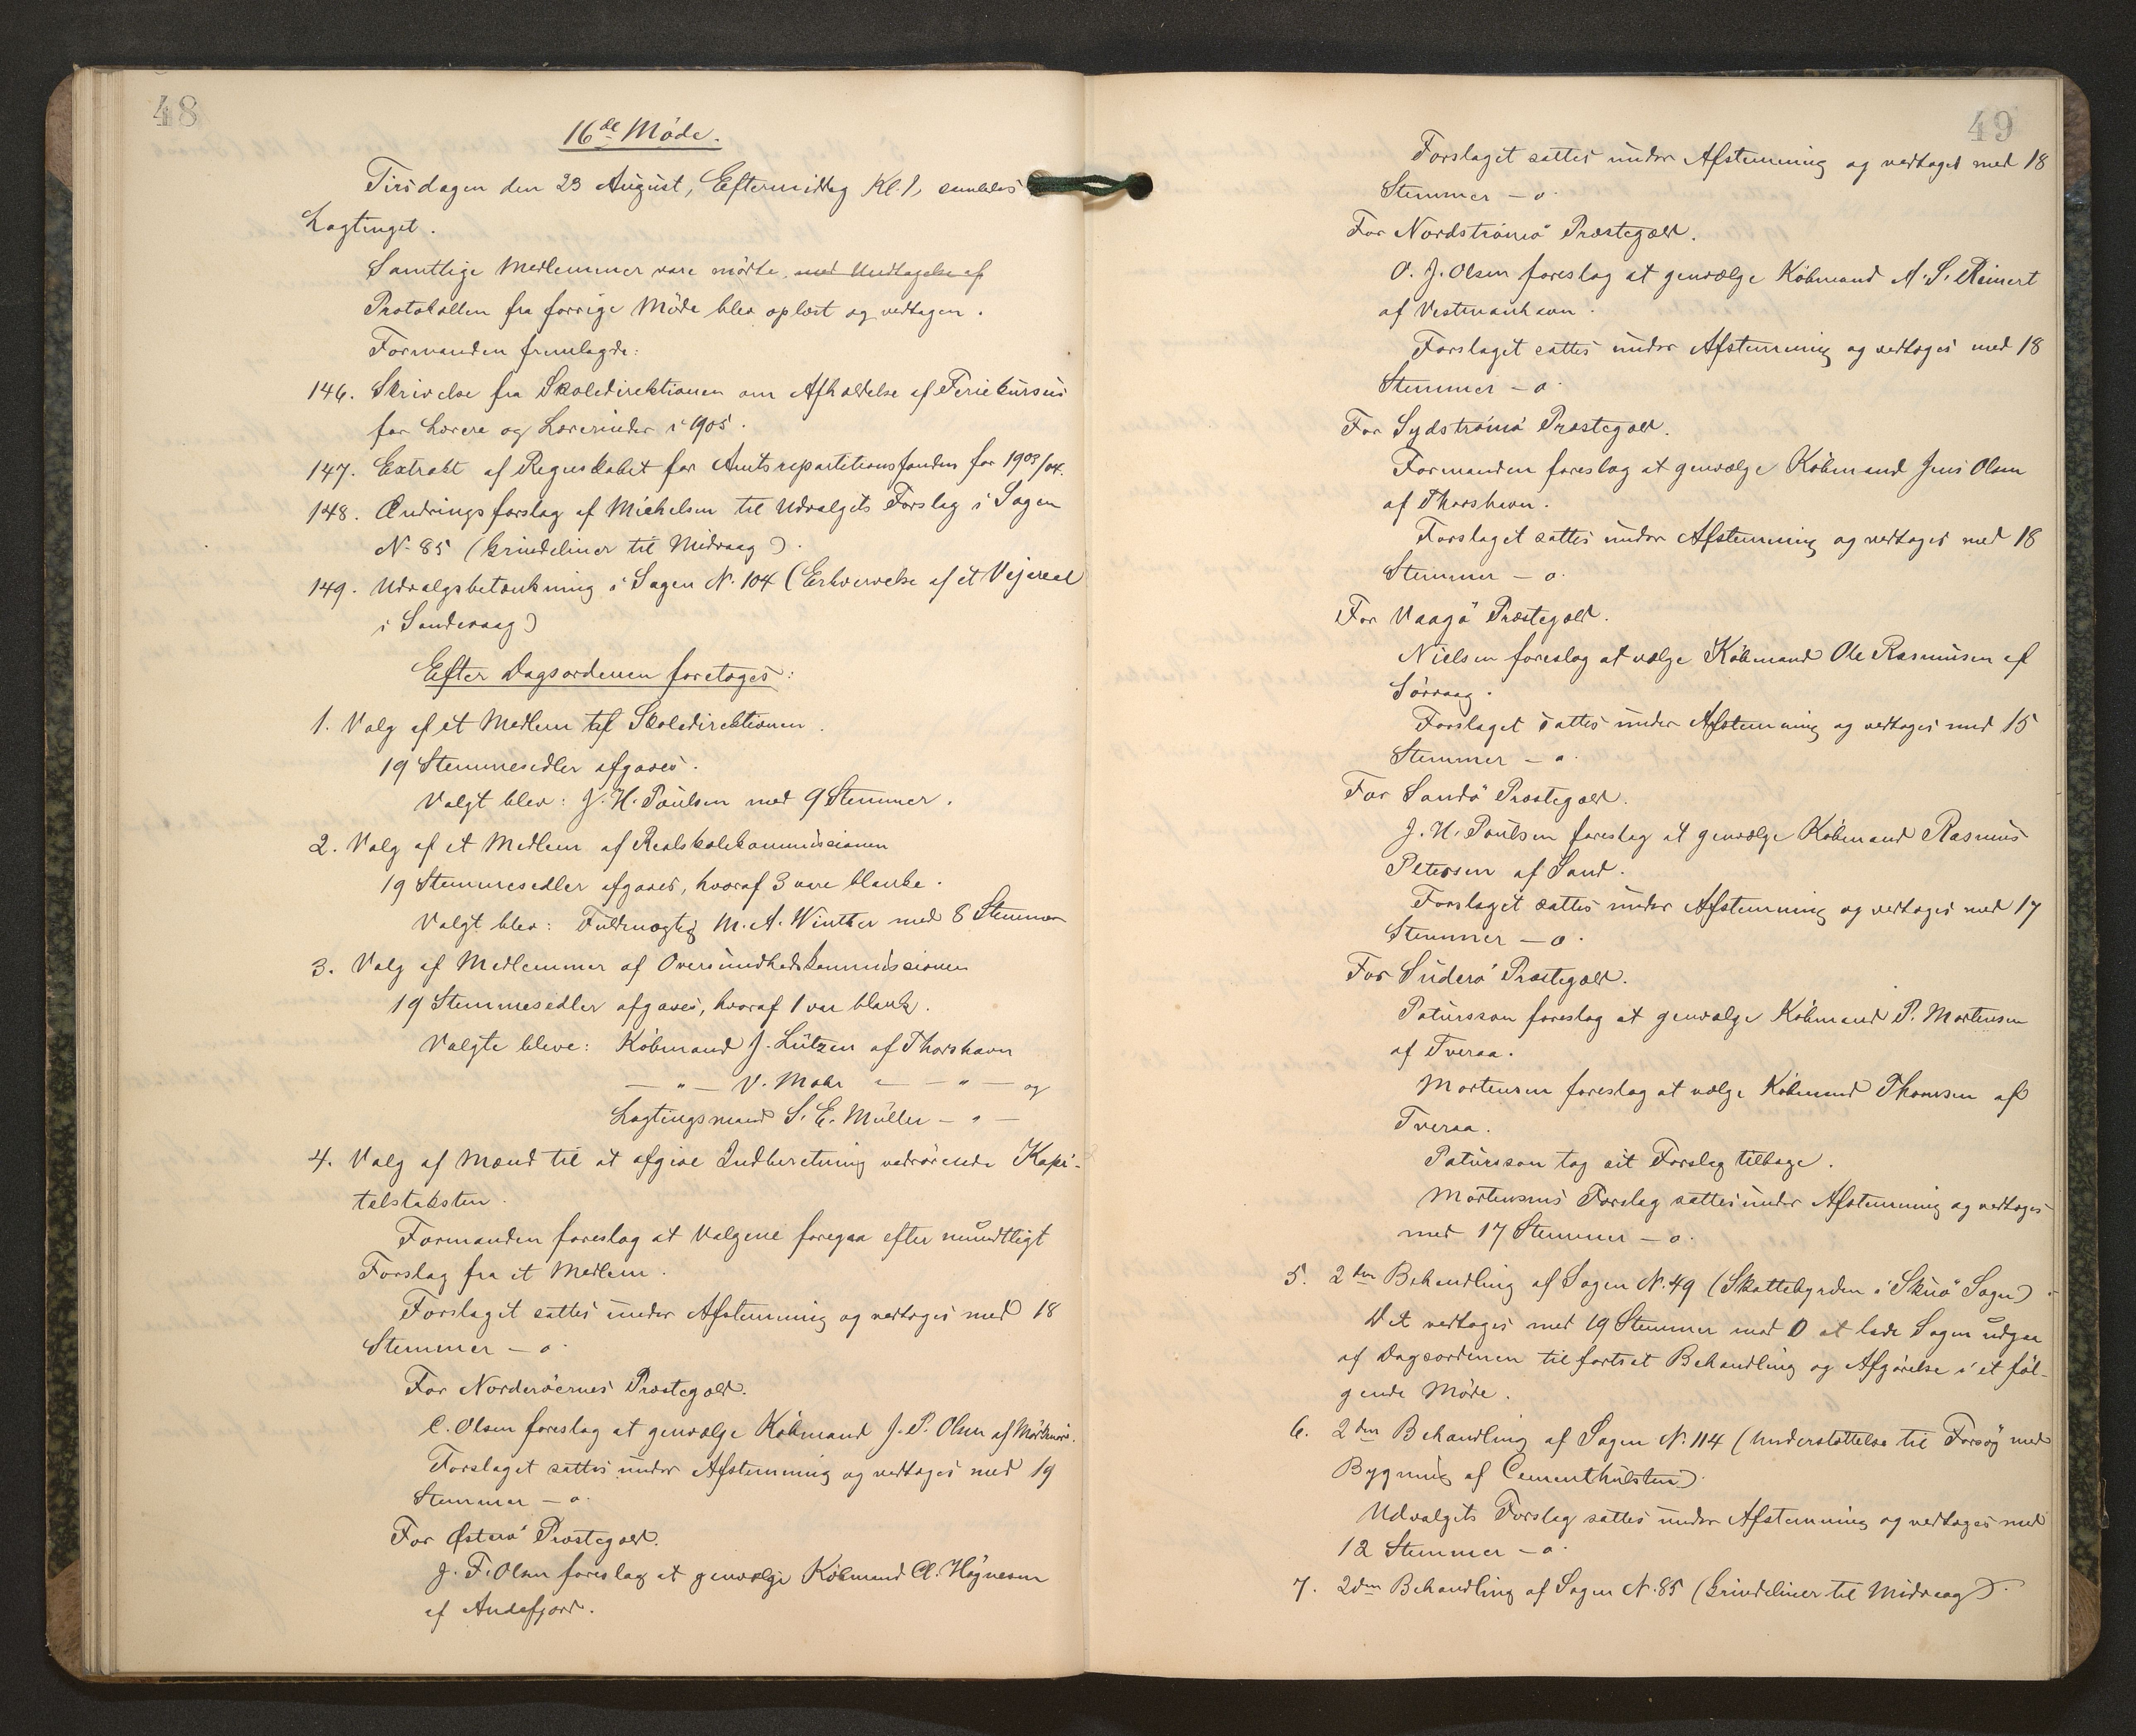 48
16de Möde.
Tirsdagen den 23 August, Eftermiddag Kl. 1, samledes
Lagtinget.
Samtlige Medlemmer vare mödte, med Undtagelse af
Protokollen fra forrige Möde blev oplæst og vedtagen.
Formanden fremlagde:
146. Skrivelse fra Skoledirektionen om Afholdelse af Feriekursus
for Lærere og Lærerinder i 1905.
147. Extrakt af Regnskabet for Amtsrepartitionsfonden for 1903/04.
148. Ændringsforslag af Michelsen til Udvalgets Forslag i Sagen
N. 85 (Grindeliner til Midvaag).
149. Udvalgsbetænkning i Sagen N. 104 (Erhvervelse af et Vejareal
i Sandevaag)
Efter Dagsordenen foretoges:
1. Valg af et Medlem til Skoledirektionen.
19 Stemmesedler afgaves.
Valgt blev: J. H. Poulsen med 9 Stemmer.
2. Valg af et Medlem af Realskolekommissionen
19 Stemmesedler afgaves, hvoraf 3 vare blanke.
Valgt blev: Fuldmægtig M. A. Winther med 8 Stemmer
3. Valg af Medlemmer af Oversundhedskommissionen
19 Stemmesedler afgaves, hvoraf 1 var blank.
Valgte bleve: Köbmand J. Lützen af Thorshavn
— " — V. Mohr — — " — og
Lagtingsmand S. E. Müller — " —
4. Valg af Mænd til at afgive Indberetning vedrörende Kapi-
telstaksten.
Formanden foreslog at Valgene foregaa efter mundtligt
Forslag fra et Medlem.
Forslaget sattes under Afstemning og vedtoges med 18
Stemmer — o.
For Norderöernes Præstegæld.
C. Olsen foreslog at genvælge Köbmand J. P. Olsen af
Forslaget sattes under Afstemning og vedtoges med 19
Stemmer — o.
For Österö Præstegæld.
J. F. Olsen foreslog at genvælge Köbmand Cl. Högnesen
af Andefjord.
49
Forslaget sattes under Afstemning og vedtoges med 18
Stemmer — o.
For Nordströmö Præstegæld.
O. J. Olsen foreslog at genvælge Köbmand A. S. Reinert
af Vestmanhavn.
Forslaget sattes under Afstemning og vedtoges med 18
Stemmer — o.
For Sydströmö Præstegæld.
Formanden foreslog at genvælge Köbmand Jens Olsen
af Thorshavn.
Forslaget sattes under Afstemning og vedtoges med 18
Stemmer — o.
For Vaagö Præstegæld.
Nielsen foreslog at vælge Köbmand Ole Rasmusen af
Sörvaag.
Forslaget sattes under Afstemning og vedtoges med 15
Stemmer — o.
For Sandö Præstegæld.
J. H. Poulsen foreslog at genvælge Köbmand Rasmus
Petersen af Sand.
Forslaget sattes under Afstemning og vedtoges med 17
Stemmer — o.
For Suderö Præstegæld.
Patursson foreslog at genvælge Köbmand P. Mortensen
af Tveraa.
Mortensen foreslog at vælge Köbmand Thomsen af
Tveraa.
Patursson tog sit Forslag tilbage.
Mortensens Forslag sattes under Afstemning og vedtoges
med 17 Stemmer — o.
5. 2den Behandling af Sagen N. 49 (Skattebyrden i Skuö Sogn).
Det vedtoges med 19 Stemmer mod 0 at lade Sagen udgaa
af Dagsordenen til fortsat Behandling og Afgörelse i et föl-
gende Möde.
6. 2den Behandling af Sagen N. 114 (Understöttelse til Forsög med
Bygning af Cementhulsten).
Udvalgets Forslag sattes under Afstemning og vedtoges med
12 Stemmer — o.
7. 2den Behandling af Sagen N. 85 (Grindeliner til Midvaag).